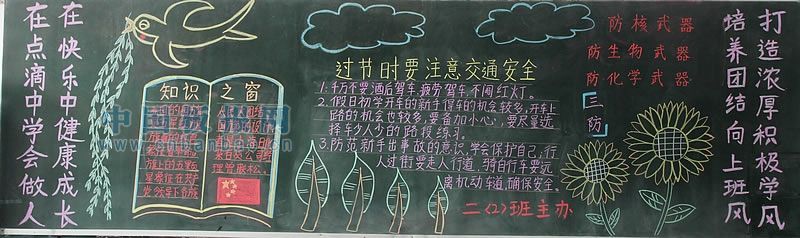 在快乐中健康成长
在点滴中学会做人
知识之窗
中国板报网
过节时要注意交通安全
1.千万不要酒后驾车,疲劳驾车,不闯红灯。
2.假日初学开车的新手得车的机会较多,开车上
路的机也较多,要备加小心,要尽量选
择车少人少的路段练习。
3.防范新手出事故的意识,学会保护自己,行
人过街要走人行道,骑自行车要远
离机动车道,确保安全。
二〈2〉班主办
防核武器
防生物武器
防化学武器
三防
打造浓厚积极学风
培养团结向上班风